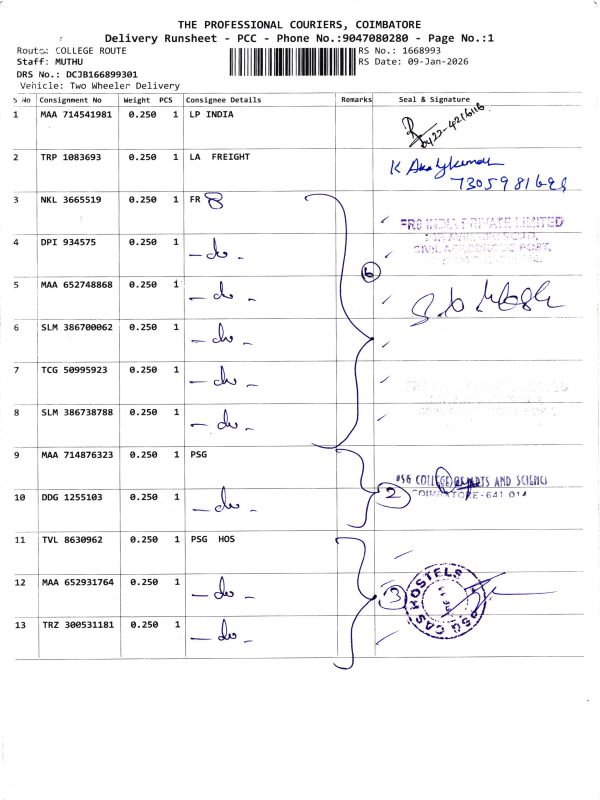 THE PROFESSIONAL COURIERS, COIMBATORE
Delivery Runsheet - PCC - Phone No.:9047080280 - Page No.:1
Route: COLLEGE ROUTE RS No.: 1668993
Staff: MUTHU RS Date: 09-Jan-2026
DRS No.: DCJB166899301
Vehicle: Two Wheeler Delivery
S No Consignment No Weight PCS Consignee Details Remarks Seal & Signature
1 MAA 714541981 0.250 1 LP INDIA
2 TRP 1083693 0.250 1 LA FREIGHT
3 NKL 3665519 0.250 1 FR 8
FR8 INDIA PRIVATE LIMITED
4 DPI 934575 0.250 1 - do -
6
5 MAA 652748868 0.250 1 - do -
6 SLM 386700062 0.250 1 - do -
7 TCG 50995923 0.250 1 - do -
8 SLM 386738788 0.250 1 - do -
9 MAA 714876323 0.250 1 PSG
PSG COLLEGE OF ARTS AND SCIENCE
COIMBATORE-641 014
10 DDG 1255103 0.250 1 - do - 2
11 TVL 8630962 0.250 1 PSG HOS
12 MAA 652931764 0.250 1 - do - 3
PSG CAS HOSTELS
13 TRZ 300531181 0.250 1 - do -